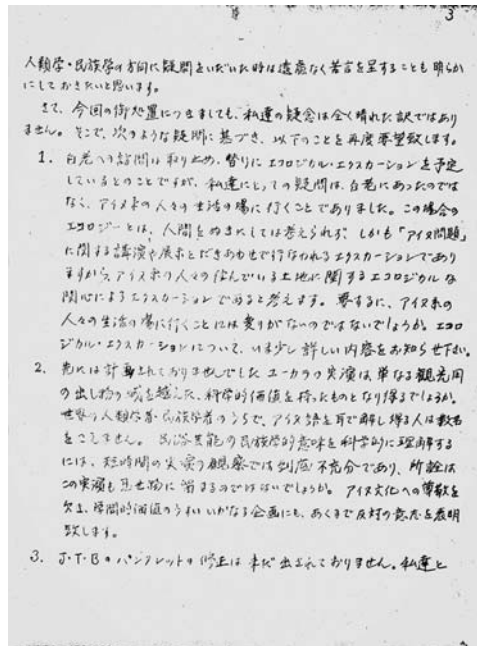 3
人類学・民族学の方向に疑問をいだいた時は遠慮なく苦言を呈することも明らか
にしておきたいと思います。
さて、今回の御処置につきましても、私達の疑念は全く晴れた訳ではあり
ません。そこで、次のような疑問に基づき、以下のことを再度要望致します。
1. 白老への訪問は取り止め、替りにエコロジカル・エクスカーションを予定
しているとのことですが、私達にとっての疑問は、白老にあったのでは
なく、アイヌ系の人々の生活の場に行くことでありました。この場合の
エコロジーとは、人間をぬきにしては考えられず、しかも「アイヌ問題」
に関する講演や展示とだきあわせで行なわれるエクスカーションであり
ますから、アイヌ系の人々の住んでいる土地に関するエコロジカルな
関心によるエクスカーションであると考えます。要するに、アイヌ系の
人々の生活の場に行くことには変りがないのではないでしょうか。エコロ
ジカル・エクスカーションについて、いま少し詳しい内容をお知らせ下さい。
2. 先には計画されておりませんでしたユーカラの実演は、単なる観光用
の出し物の域を越えた、科学的価値を持ったものとなり得るでしょうか。
世界の人類学者・民族学者のうちで、アイヌ語を耳で解し得る人は数名
をこえません。民俗芸能の民族学的意味を科学的に理解する
には、短時間の実演の観察では到底不充分であり、所詮は
この実演も見世物に留まるのではないでしょうか。アイヌ文化への尊敬を
欠き、学問的価値のうすいいかなる企画にも、あくまで反対の意志を表明
致します。
3. J・T・Bのパンフレットの修正は未だ出されておりません。私達と